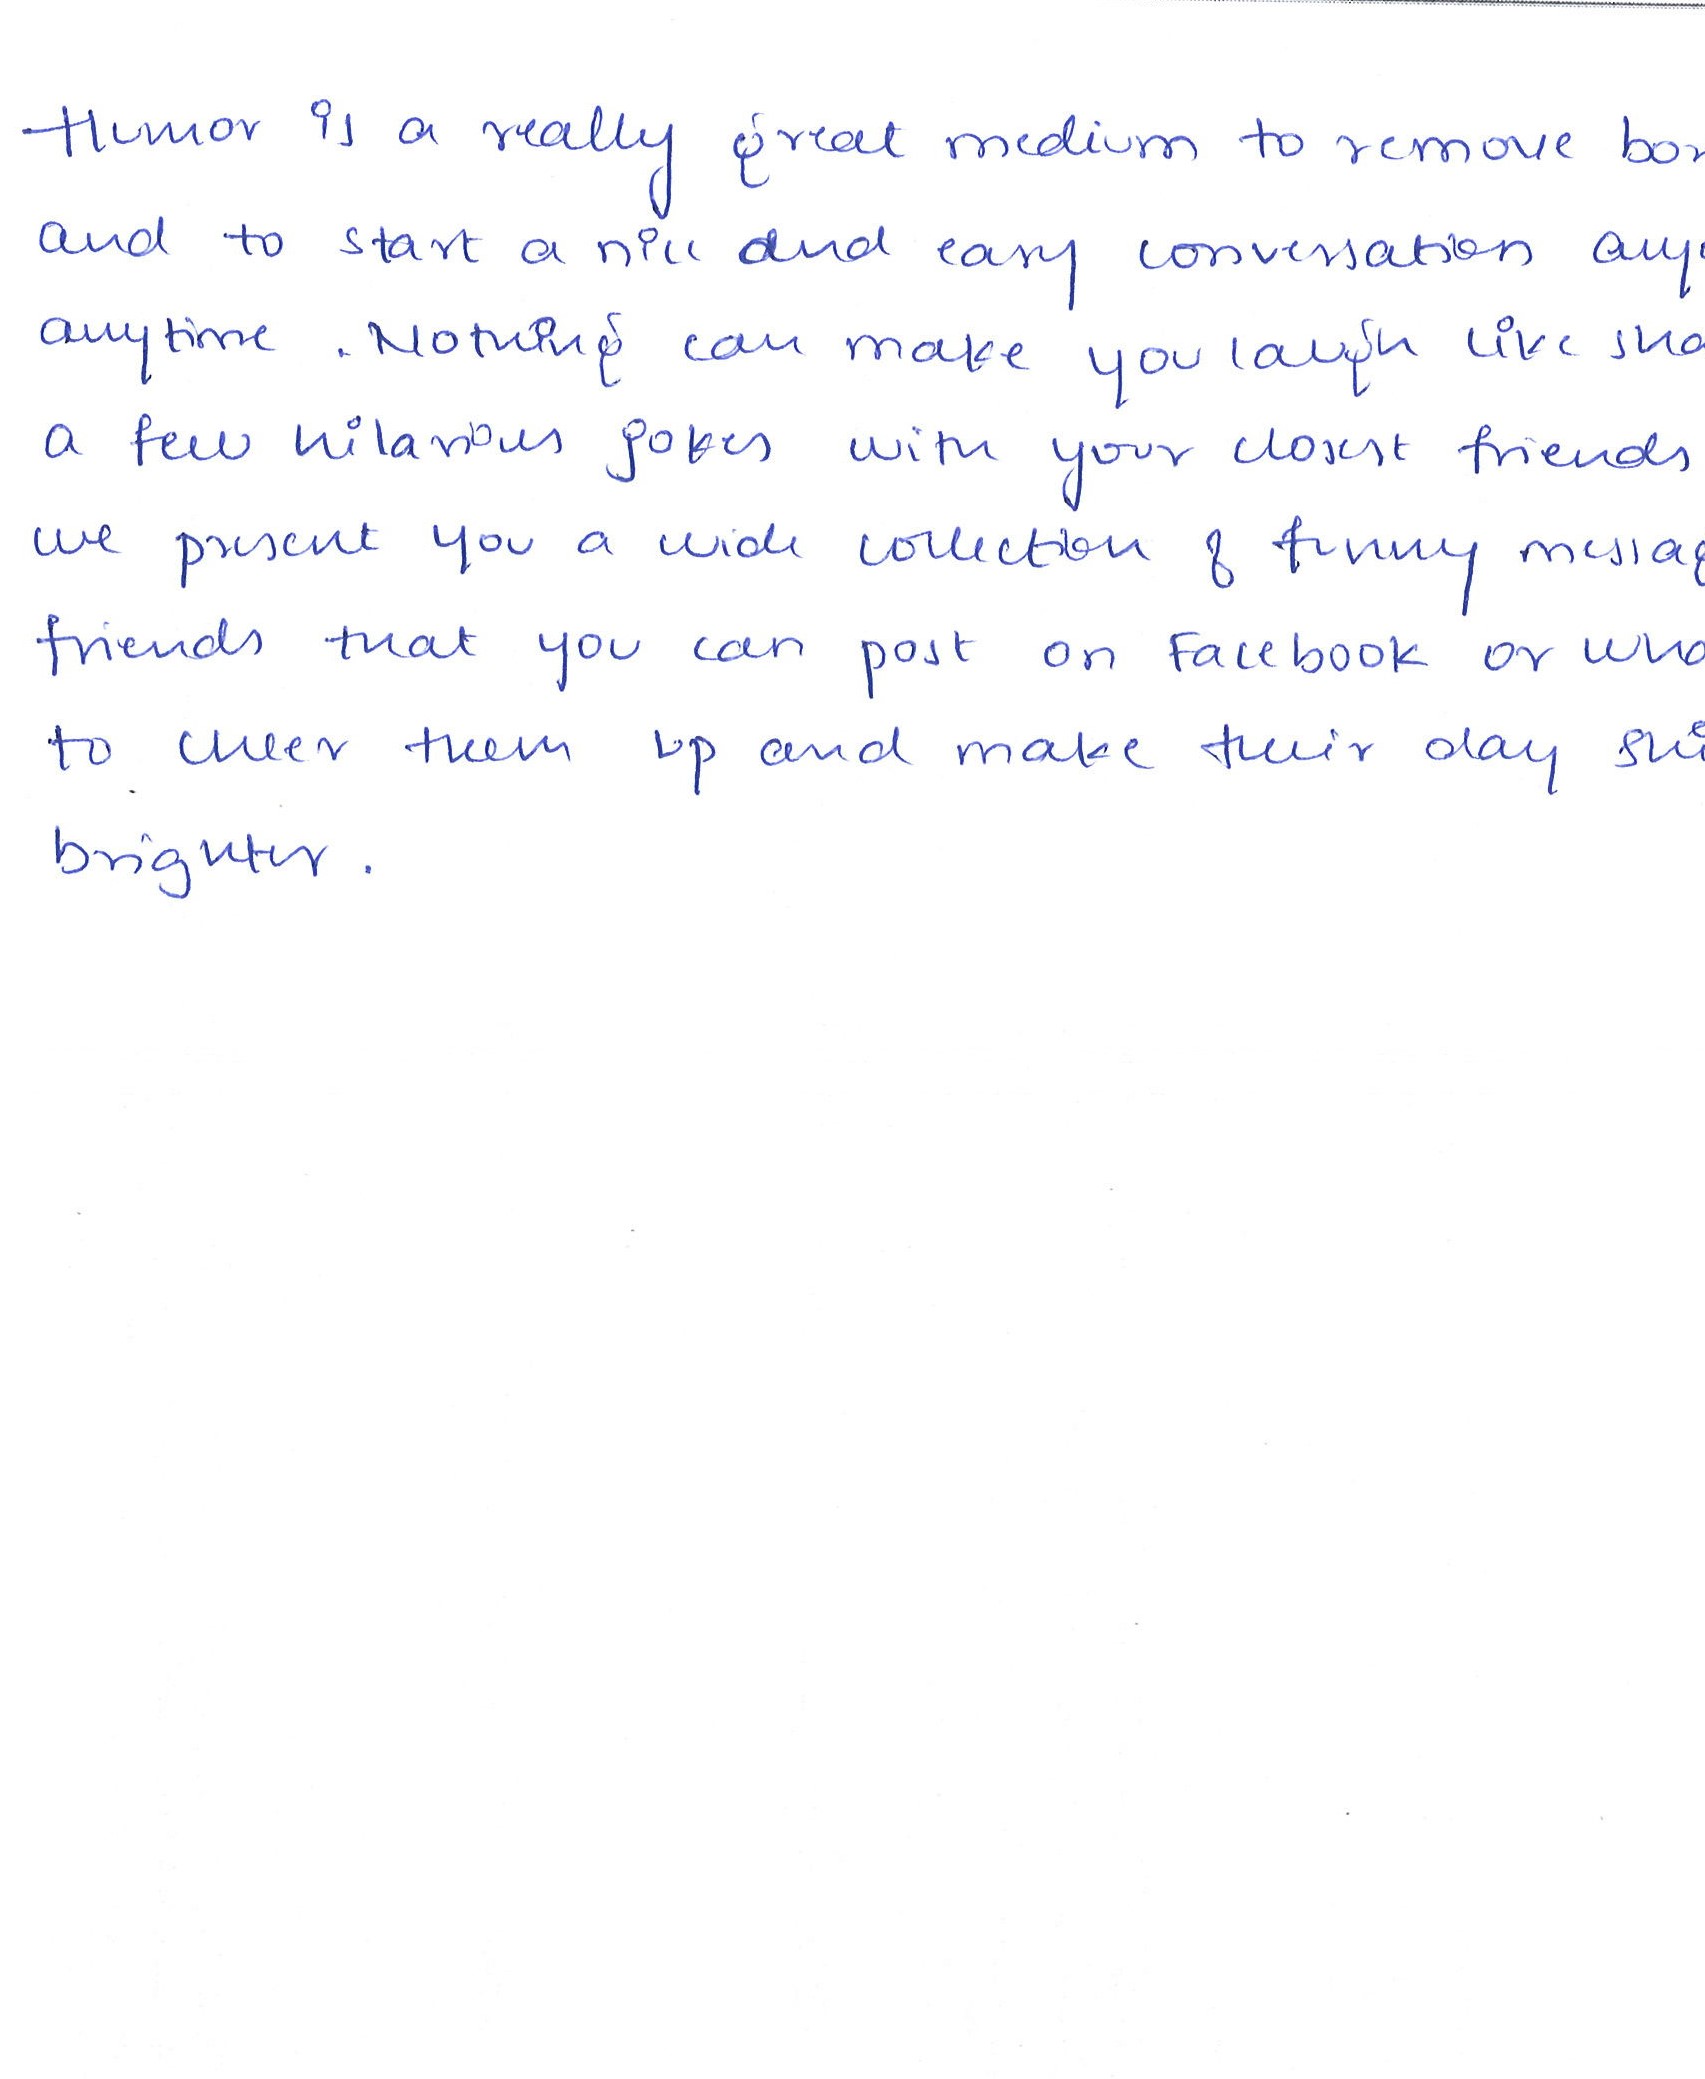 Humor is a really great medium to remove
and to start a nice and easy conversation
anytime . Nothing can make you laugh like
a few hilarious jokes with your closest friends
we present you a wide collection of funny
friends that you can post on Facebook or
to cheer them up and make their day
brighter .